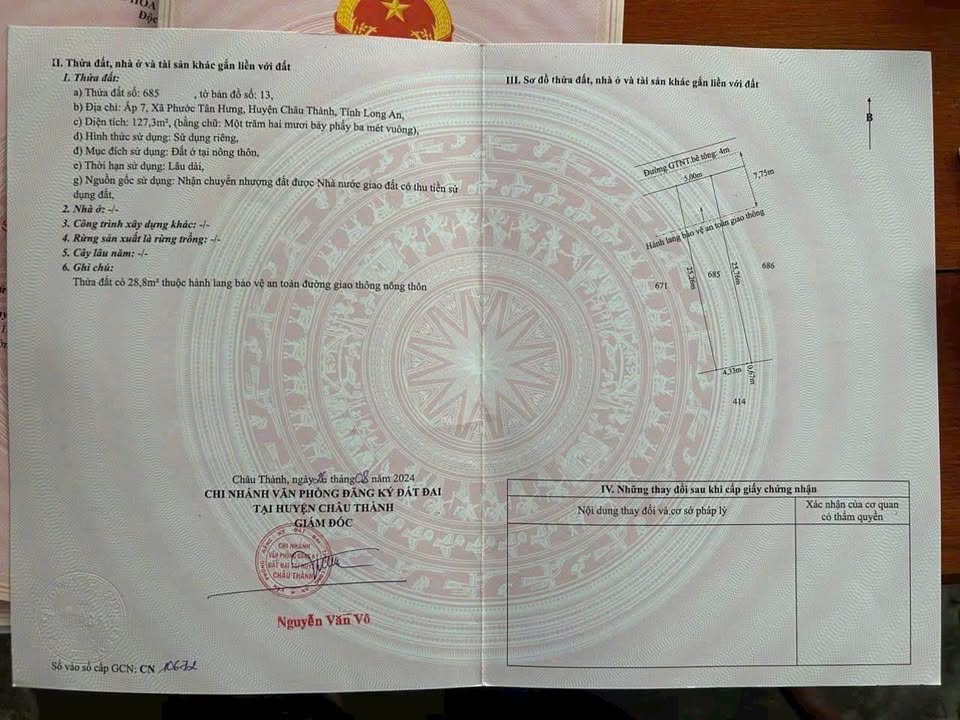 HÒA
Độc
II. Thửa đất, nhà ở và tài sản khác gắn liền với đất
1. Thửa đất:
a) Thửa đất số: 685 , tờ bản đồ số: 13,
b) Địa chỉ: Ấp 7, Xã Phước Tân Hưng, Huyện Châu Thành, Tỉnh Long An,
c) Diện tích: 127,3m², (bằng chữ: Một trăm hai mươi bảy phẩy ba mét vuông),
d) Hình thức sử dụng: Sử dụng riêng,
đ) Mục đích sử dụng: Đất ở tại nông thôn,
e) Thời hạn sử dụng: Lâu dài,
g) Nguồn gốc sử dụng: Nhận chuyển nhượng đất được Nhà nước giao đất có thu tiền sử
dụng đất,
2. Nhà ở: -/-
3. Công trình xây dựng khác: -/-
4. Rừng sản xuất là rừng trồng: -/-
5. Cây lâu năm: -/-
6. Ghi chú:
Thửa đất có 28,8m² thuộc hành lang bảo vệ an toàn đường giao thông nông thôn
Châu Thành, ngày 26 tháng 08 năm 2024
CHI NHÁNH VĂN PHÒNG ĐĂNG KÝ ĐẤT ĐAI
TẠI HUYỆN CHÂU THÀNH
GIÁM ĐỐC
CHI NHÁNH
VĂN PHÒNG ĐĂNG KÝ
ĐẤT ĐAI TẠI HUYỆN
CHÂU THÀNH
Nguyễn Văn Vô
Số vào sổ cấp GCN: CN 10632
III. Sơ đồ thửa đất, nhà ở và tài sản khác gắn liền với đất
B
Đường GTNT.bê tông: 4m
5,00m
7,75m
Hành lang bảo vệ an toàn giao thông
25,26m
685
25,76m
686
671
4,33m
0,67m
414
IV. Những thay đổi sau khi cấp giấy chứng nhận
Nội dung thay đổi và cơ sở pháp lý
Xác nhận của cơ quan
có thẩm quyền